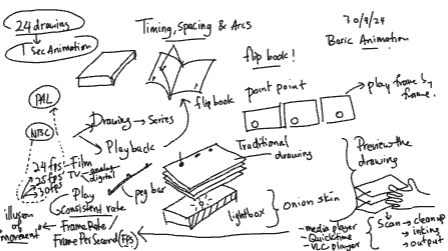 24 drawing
1 Sec Animation
Timing, spacing & Arcs
30/9/24
Basic Animation
flip book!
PAL
NTSC
Drawing → Series
Playback
flipbook
point point
play frame by
frame.
24 fps - Film
25 fps TV - analog
digital
30 fps
Play
Consistent rate
peg bar
Traditional
drawing
Preview the
drawing
lightbox
onion skin
illusion
of
movement
Frame Rate
Frame Per Second (FPS)
- media player
- Quicktime
- VLC player
Scan → cleanup
→ inking
→ output